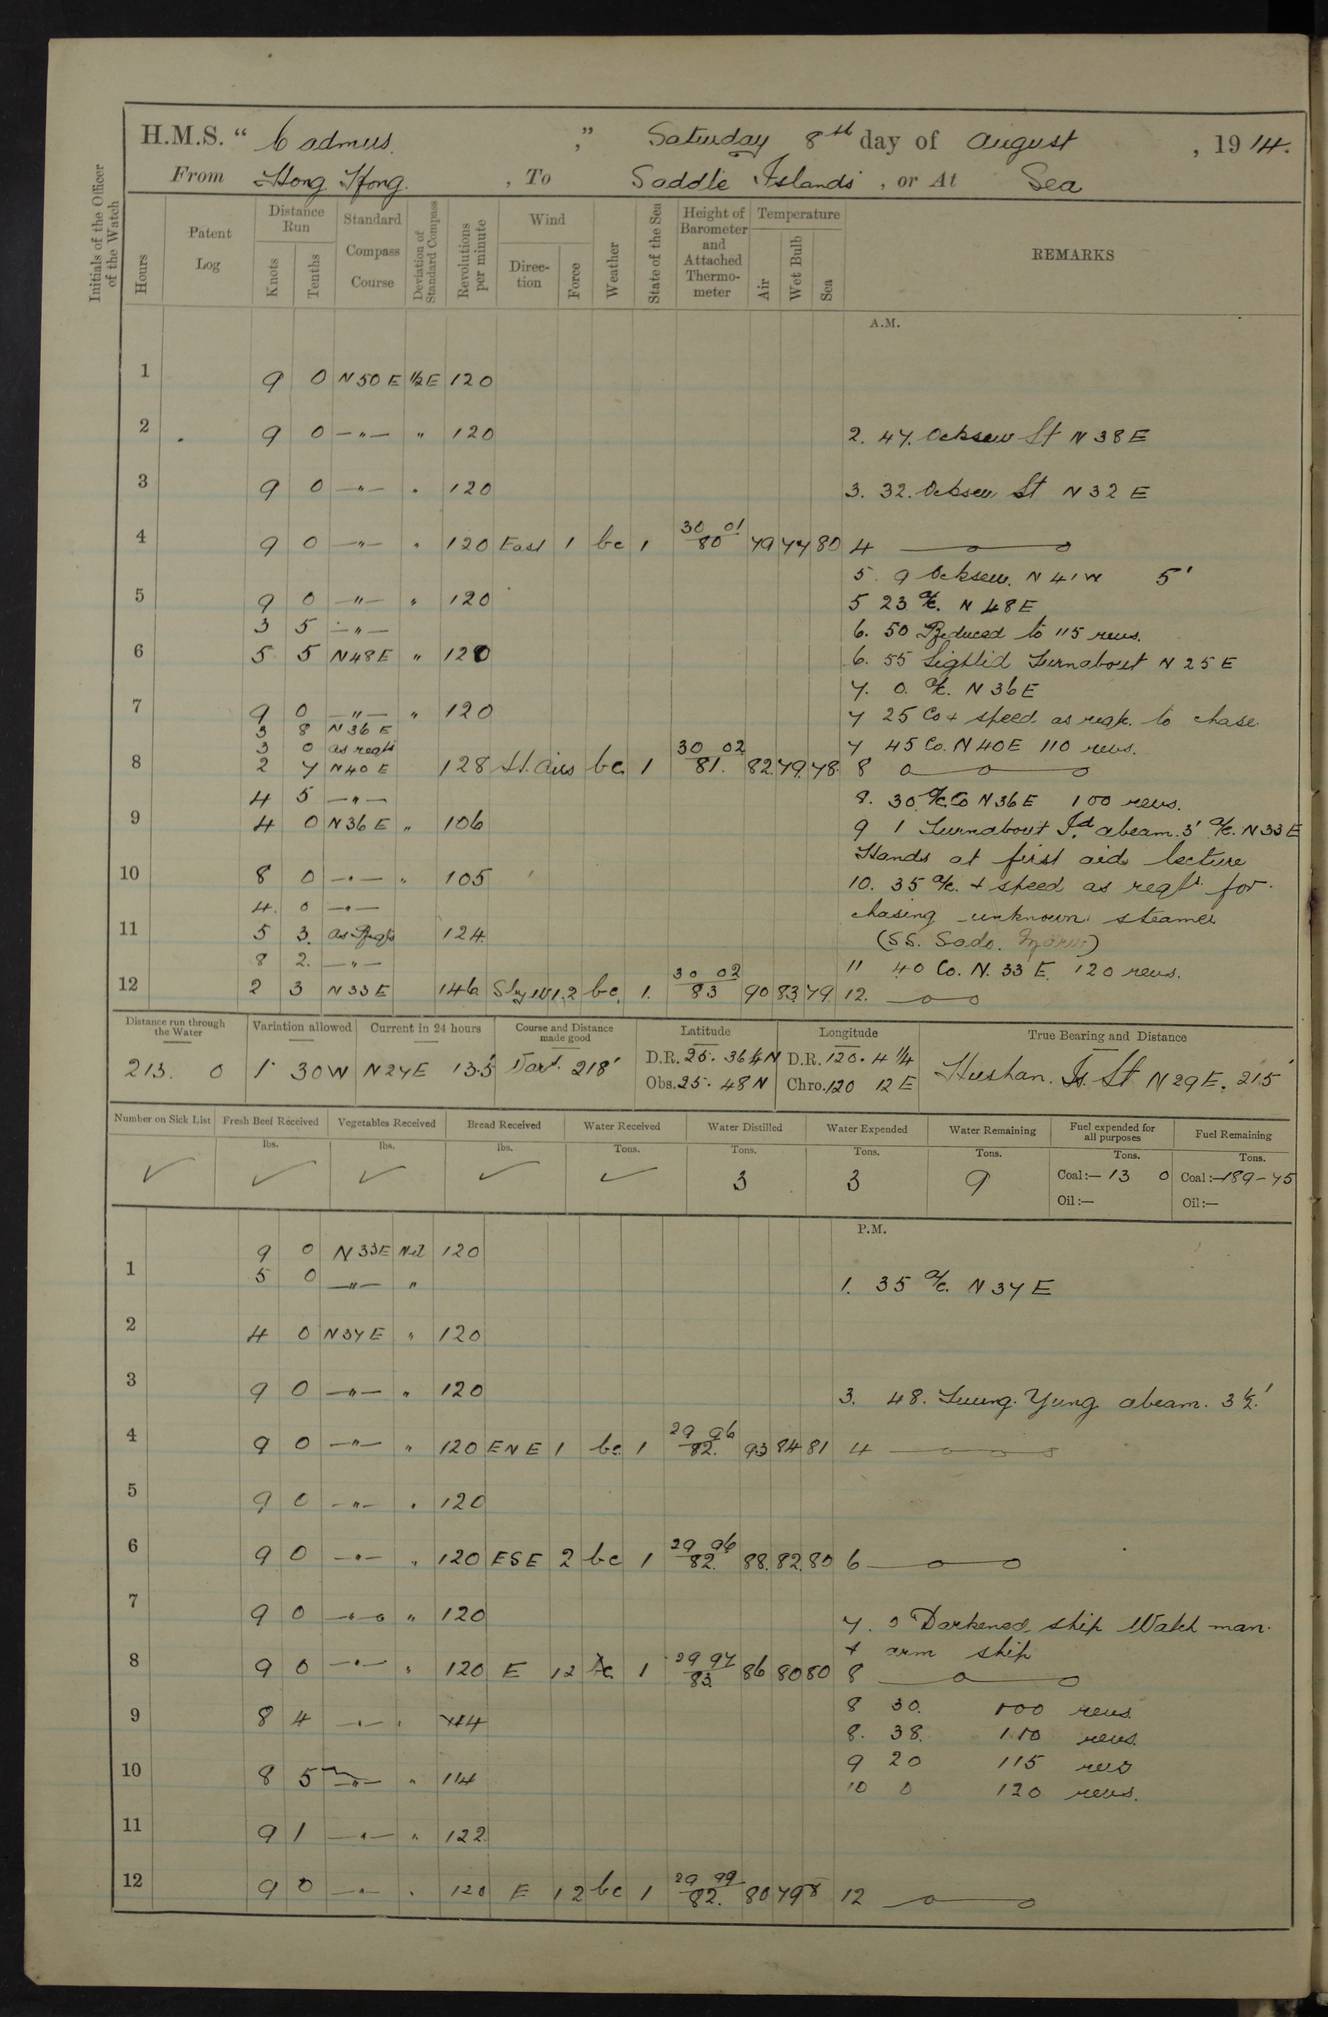 H.M.S. “ Cadmus. ,” Saturday 8th day of August , 1914.
From Hong Kong. , To Saddle Islands , or At Sea
Initials of the Officer of the Watch
Hours
Patent Log
Distance Run
Knots
Tenths
Standard Compass Course
Deviation of Standard Compass
Revolutions per minute
Wind
Direction
Force
Weather
State of the Sea
Height of Barometer and Attached Thermometer
Temperature
Air
Wet Bulb
Sea
REMARKS
A.M.
1 9 0 N50E 1/2E 120
2 9 0 —"— " 120 2. 47. Ocksew Lt N38E
3 9 0 —"— " 120 3. 32. Ocksew Lt N32E
4 9 0 —"— " 120 East 1 bc 1 30 01 80 79 77 80 4
5. 9 Ocksew. N41W 5'
5 9 0 —"— " 120 5 23 a/c. N48E
3 5 —"— 6. 50 Reduced to 115 revs.
6 5 5 N48E " 120 6. 55 Sighted Turnabout N25E
7. 0. a/c. N36E
7 9 0 —"— " 120 7 25 Co + speed as reqd. to chase
3 8 N36E
3 0 as reqd 7 45 Co. N40E 110 revs.
8 2 7 N40E 128 Lt. airs bc. 1 30 02 81. 82 79 78 8
4 5 —"— 8. 30 a/c Co N36E 100 revs.
9 4 0 N36E " 106 9 1 Turnabout Id. abeam. 3' a/c. N33E
Hands at first aid lecture
10 8 0 —"— " 105 10. 35 a/c. + speed as reqd. for
4. 0 —"— chasing unknown steamer
11 5 3. as Reqd 124. (S.S. Sado. Maru)
8 2. —"— 11 40 Co. N. 33 E. 120 revs.
12 2 3 N33E 146 Sly 1.2 bc. 1. 30 02 83 90 83 79 12.
Distance run through the Water
213. 0
Variation allowed
1° 30W
Current in 24 hours
N27E 13.5'
Course and Distance made good
218'
Latitude
D.R. 25. 36¼N
Obs. 25. 48N
Longitude
D.R. 120. 4¼
Chro. 120 12E
True Bearing and Distance
Hieshan. Is. Lt N29E. 215'
Number on Sick List Fresh Beef Received Vegetables Received Bread Received Water Received Water Distilled Water Expended Water Remaining Fuel expended for all purposes Fuel Remaining
lbs. lbs. lbs. Tons. Tons. Tons. Tons. Tons. Tons.
✓ ✓ ✓ ✓ ✓ 3 3 9 Coal:— 13 0 Coal:— 189-75
Oil:— Oil:—
P.M.
1 9 0 N33E Nil 120
5 0 —"— " 1. 35 a/c. N37E
2 4 0 N37E " 120
3 9 0 —"— " 120 3. 48. Tung Yung abeam. 3½'
4 9 0 —"— " 120 ENE 1 bc. 1 29 96 82. 93 84 81 4
5 9 0 —"— " 120
6 9 0 —"— " 120 ESE 2 bc 1 29 96 82. 88. 82. 80 6
7 9 0 —"— " 120 7. 0 Darkened ship Watch man
+ arm ship
8 9 0 —"— " 120 E 12 bc 1 29 97 83. 86 80 80 8
8 30. 100 revs.
9 8 4 —"— " 114 8. 38. 110 revs.
9 20 115 revs
10 8 5 —"— " 114 10 0 120 revs.
11 9 1 —"— " 122
12 9 0 —"— " 120 E 12 bc 1 29 99 82. 80 79 12